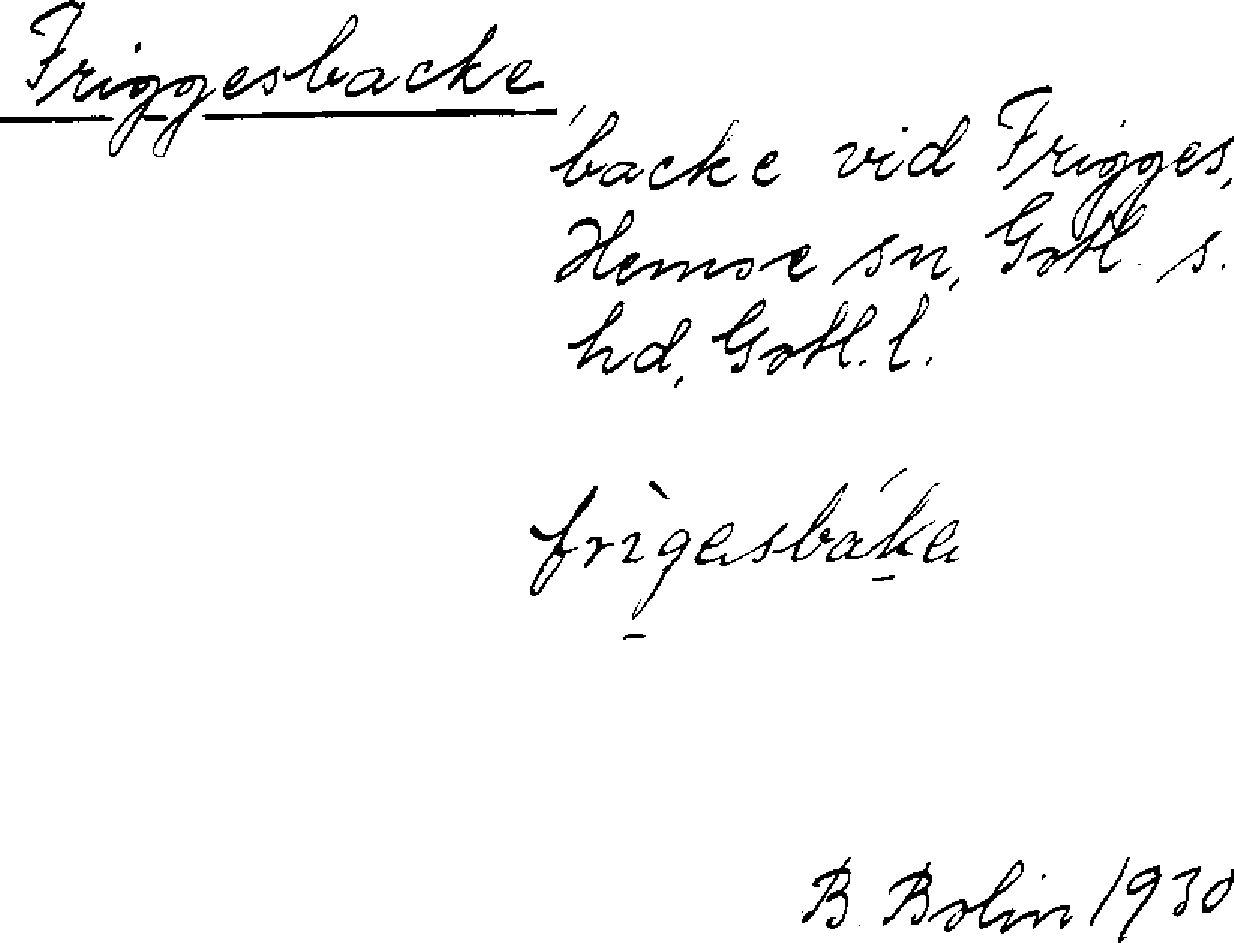 Friggesbacke
backe vid Frigges,
Hemse sn, Gotl. s.
hd, Gotl. l.
frìgesbáke
B. Bolin 1930